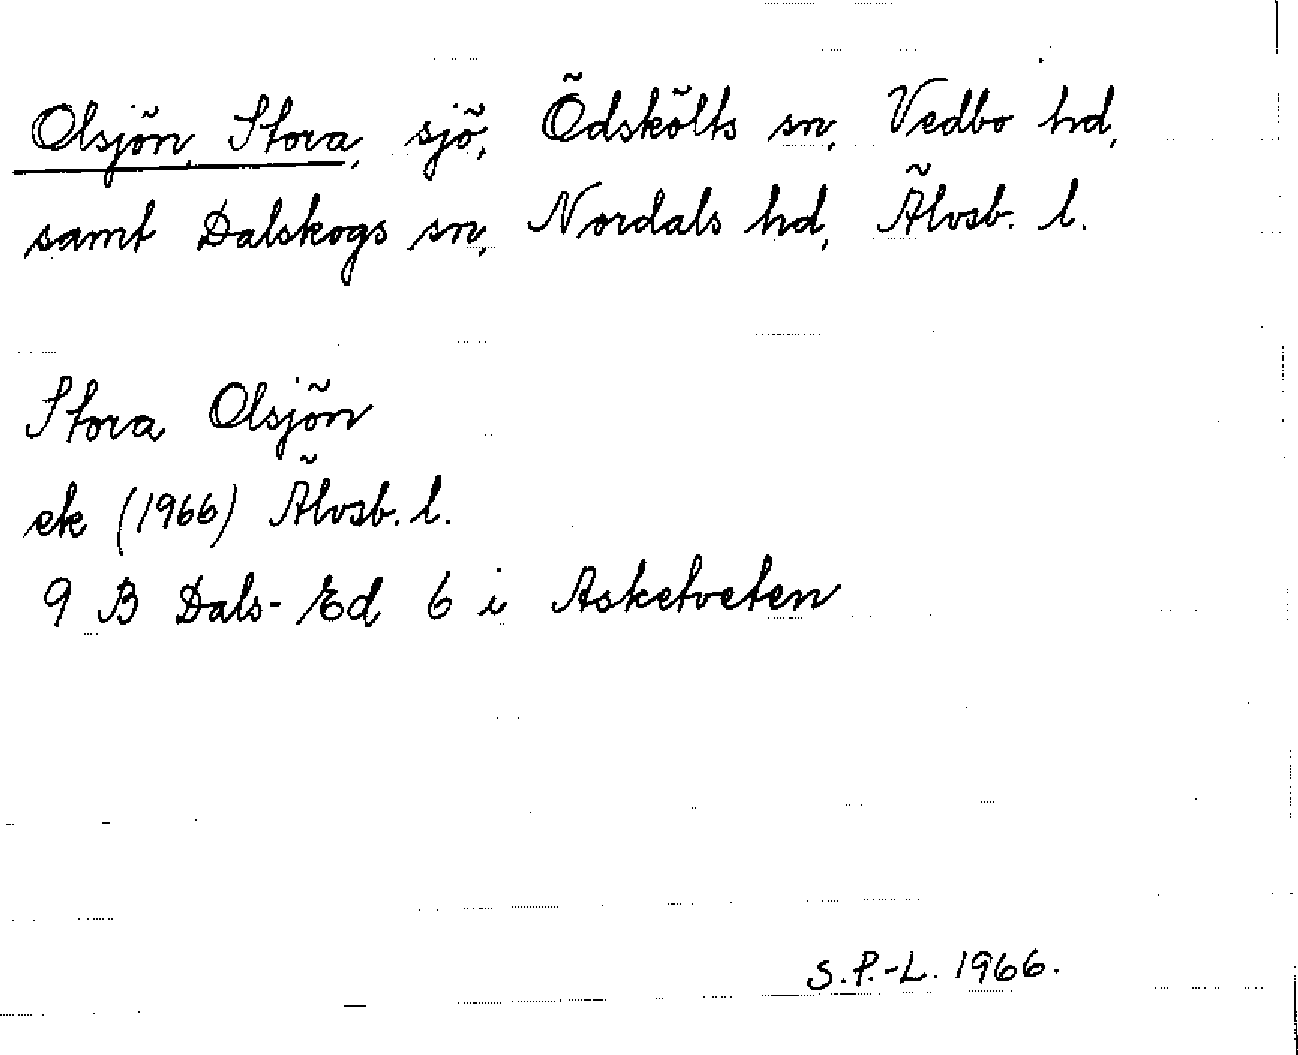 Olsjön, Stora, sjö, Ödskölts sn, Vedbo hd,
samt Dalskogs sn, Nordals hd, Älvsb. l.
Stora Olsjön
ek (1966) Älvsb. l.
9 B Dals-Ed 6 i Asketveten
S.P.-L. 1966.